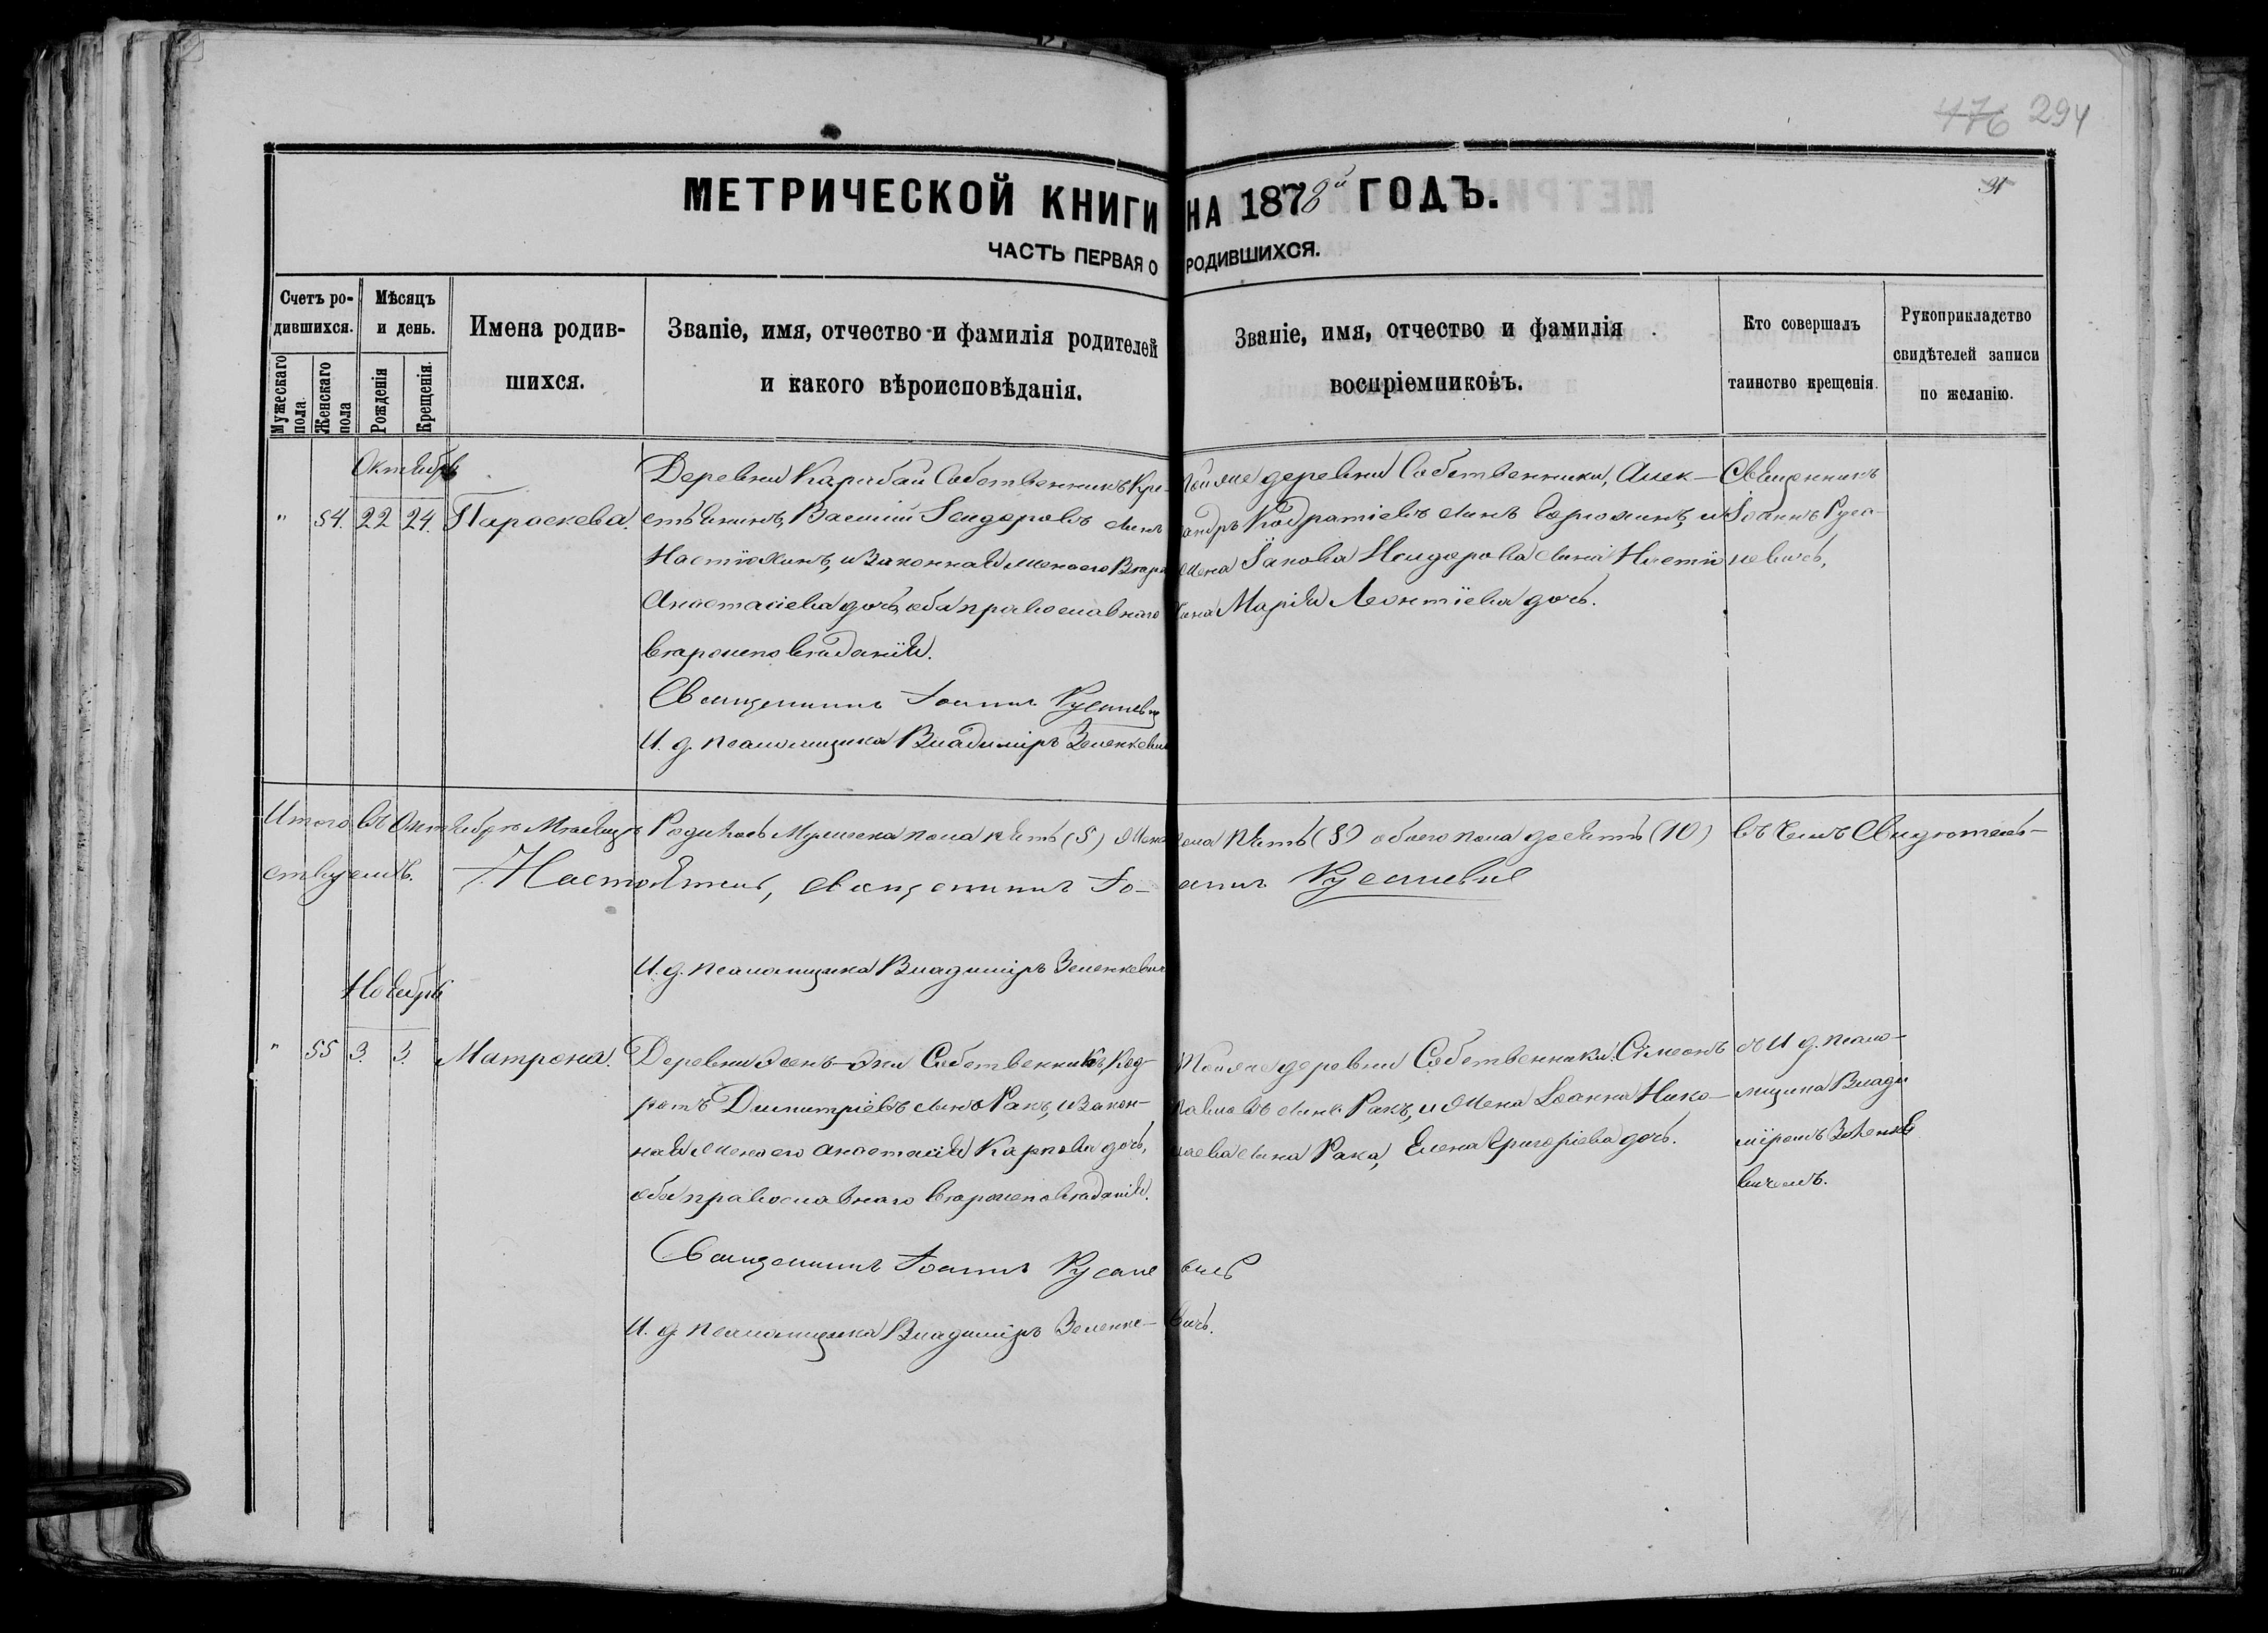 476 294
МЕТРИЧЕСКОЙ КНИГИ НА 1878й ГОДЪ.
91
ЧАСТЬ ПЕРВАЯ О РОДИВШИХСЯ.
Счетъ ро-
дившихся.
Мужескаго пола.
Женскаго пола
Мѣсяцъ
и день.
Рожденія
Крещенія.
Имена родив-
шихся.
Званіе, имя, отчество и фамилія родителей
и какого вѣроисповѣданія.
Званіе, имя, отчество и фамилія
воспріемниковъ.
Кто совершалъ
таинство крещенія.
Рукоприкладство
свидѣтелей записи
по желанію.
Октябрь
" 54. 22 24. Параскева.
Деревни Карабай Собственникъ Кре-
стьянинъ, Василій Ісидоровъ сынъ
Настюхинъ, и Законная жена его Вѣра
Анастасіева дочь, оба православнаго
вѣроисповѣданія.
Священникъ Іоаннъ Русаневичъ
И. д. псаломщика Владиміръ Зеленкевичъ
Той же деревни Собственники, Алек-
сандръ Кодратіевъ сынъ и
жена Іакова Исидорова сына Настю
хина Марія Леонтіева дочь.
Священникъ
Іоаннъ Руса-
невичъ,
Итого въ Октябрѣ Мѣсяцѣ Родилось Мужеска пола пять (5) Женска пола пять (5) обоего пола десять (10) въ чемъ Свидѣтель-
ствуемъ. Настоятель, священникъ Іоаннъ Русаневичъ
И. д. псаломщика Владиміръ Зеленкевичъ
Ноябрь
" 55 3. 3. Матрона.
Деревни Эсень-Эки Собственникъ, Код-
ратъ Димитріевъ сынъ Ракъ, и Закон-
ная жена его Анастасія Карпова дочь,
оба православнаго вѣроисповѣданія.
Священникъ Іоаннъ Русаневичъ
И. д. псаломщика Владиміръ Зеленкевичъ.
Той же деревни Собственники: Сѵмеонъ
Павловъ сынъ Ракъ, и жена Іоанна Нико-
лаева сына Рака, Елена Григоріева дочь.
съ И д. псало-
мщика Влади
міромъ Зѣленке
вичемъ.